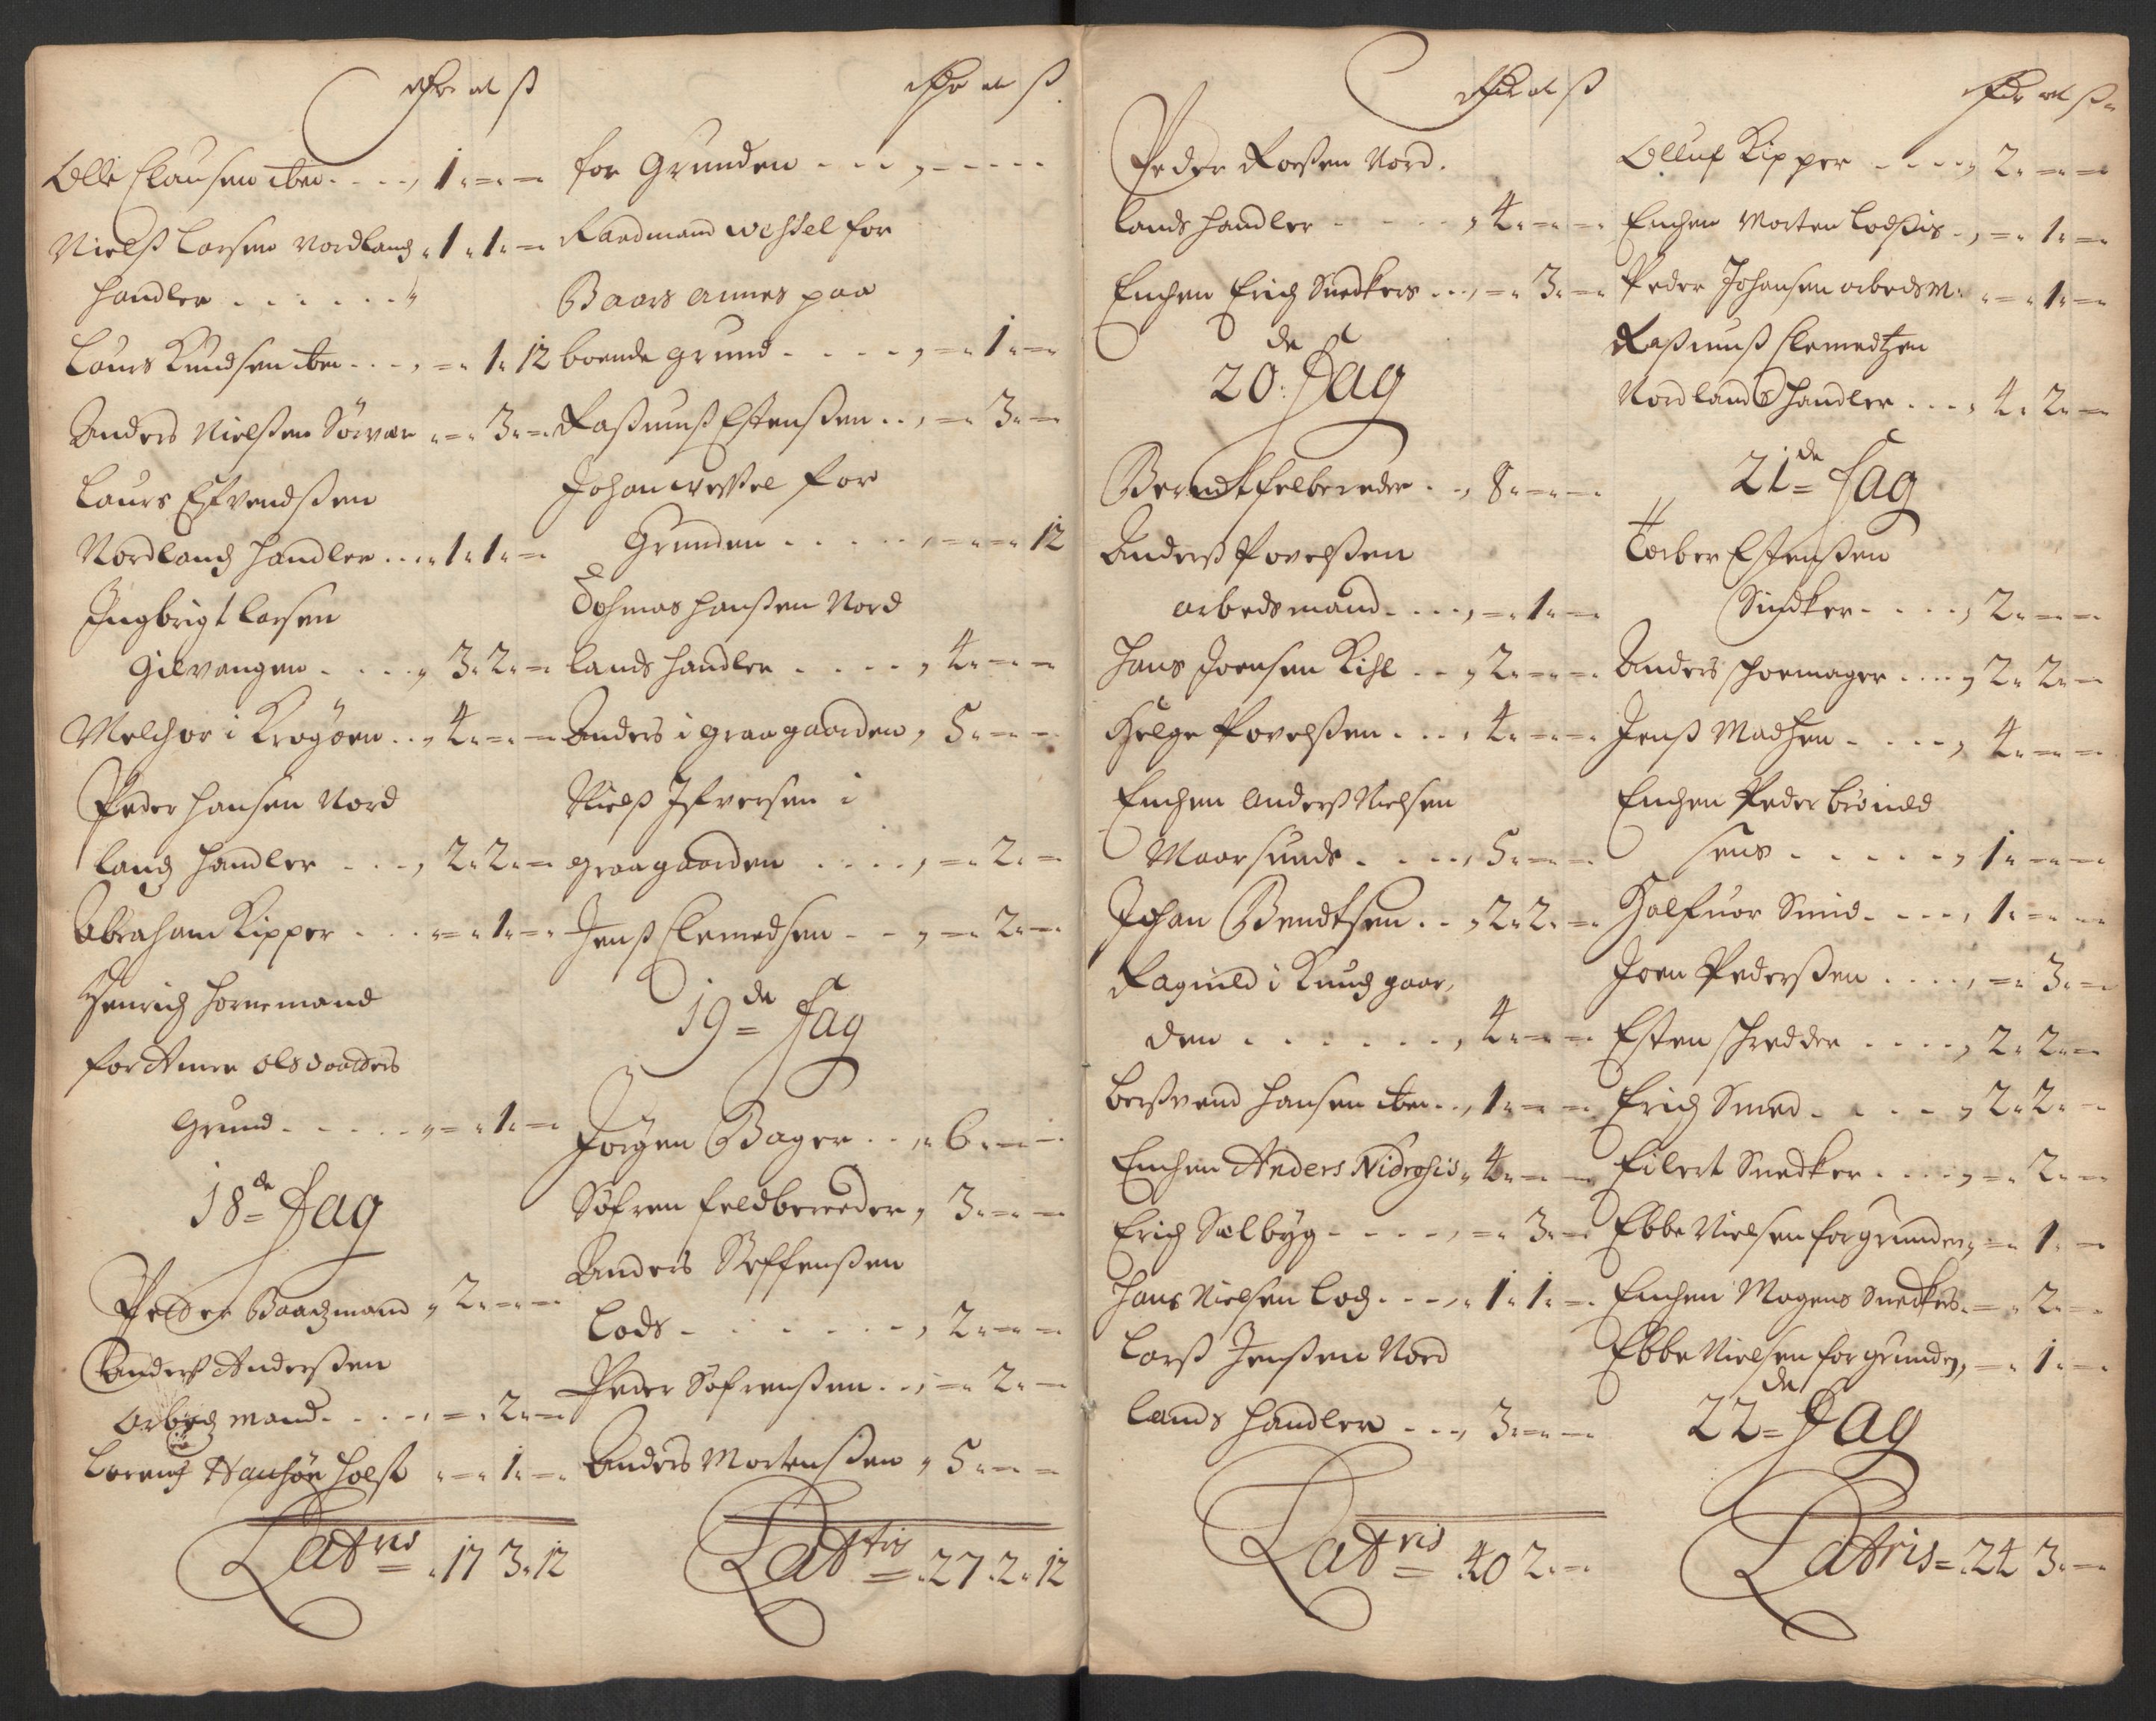 Rdr ort ß
Olle Clausen iben . . . . , 1. – –
Nielß Larsen Nordlandz . 1. 1. –
handler . . . . . . "
Laurs Knudsen iben . . . , – . 1. 12
Anders Nielßen Sörvær – . 3. –
Laurs Esvendsßen
Nordlandz handler . . . . 1. 1. –
Ingbrigt Larsen
Gilvangen . . . . , 3. 2. –
Melchor i Krogøen . . , 4. – –
Peder Hansen Nord
landz handler . . . , 2. 2. –
Abraham Kipper . . . – . 1. –
Henrich Hornemand
for Anne Olsdaatters
Grund . . . . . , – . 1. –
18de Fag
Petter Baadzmand , 2. – –
Anders Anderßen
arbedz mand . . . . , – . 2. –
Lorentz Hansøn Holst . – . 1. –
Lateris . 17 3. 12
Rdr ort ß
for Grunden . . . , – – –
Raadmand Wessel for
Baars Annes paa
boende grund . . . . , – . 1. –
Raßmuß Estensßen . . , – . 3. –
Johan Wessel for
Grunden . . . . . , – – . 12
Tohmas Hanßen Nord
lands handler . . . . , 4. – –
Anders i Graagaarden , 5. – –
Nielß Ifversen i
graagaarden . . . . , – . 2. –
Jenß Clemedsen . . , – . 2. –
19de Fag
Jørgen Bager . . , 6. – –
Søfren feldbereeder , 3. – –
Anders Steffensßen
Lods . . . . . . , 2. – –
Peder Søfrensßen . . , – . 2. –
Anders Mortensßen , 5. – –
Lateris . 27. 2. 12
Rdr ort ß
Peder Roeßen Nord.
lands handler . . . . , 4. – –
Enchen Erich Snedkers . . , – . 3. –
20de Fag
Berndt felbereder . . , 8. – –
Anderß Povelßen
arbedsmand . . . . , – . 1. –
Hans Joensen Kihl . . , 2. – –
Helge Povelßen . . . , 4. – –
Enchen Anderß Nielsen
Maarsunds . . . . , 5. – –
Johan Bendtsen . . , 2. 2. –
Ragnild i Knudz gaar,
den . . . . . . , 4. – –
Berßvend Hansen iben . . , 1. – –
Enchen Anders Nidrosis , 4. – –
Erich Sælbyg . . . . , – . 3. –
Hans Nielsen Lodz . . . , . 1. 1. –
Larß Jenßen Nord
lands handler . . . , 3. – –
Lateris . 40 2. –
Rdr ort ß
Olluf Kipper . . . . , 2. – –
Enchen Morten Lodßis . , – . 1. –
Peder Johansen arbedsm: . – . 1. –
Raßmuß Clemedtzen
Nordlands handler . . . , 4. 2. –
21de Fag
Torber Estensßen
Snedker . . . . , 2. – –
Anders schoemager . . . , 2. 2. –
Jenß Madhsen . . . . , 4. – –
Enchen Peder Brönild
sens . . . . . . , 1. – –
Halfuor Smid . . . . , 1. – –
Joen Pederßen . . . . , – . 3. –
Esten schredder . . . . , 2. 2. –
Erich Smed . . . . , 2. 2. –
Eilert Snedker . . . . , – . 2. –
Ebbe Nielsen for grunden , – . 1. –
Enchen Mogens Snedkers . – . 2. –
Ebbe Nielsen for grunden , – . 1. –
22de Fag
Lateris = . 24 3. –